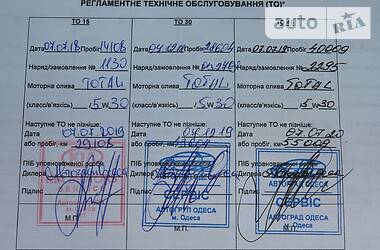 РЕГЛАМЕНТНЕ ТЕХНІЧНЕ ОБСЛУГОВУВАННЯ (ТО)*
auto RIA
ТО 15 ТО 30
Дата 07.07.18 Пробіг 14108 Дата Пробіг 28604 Дата 07.07.18 Пробіг 40009
Наряд/замовлення № 1130 Наряд/замовлення № Наряд/замовлення № 2295
Моторна олива TOTAL Моторна олива TOTAL Моторна олива TOTAL
(класс/в'язкість) 5 W 30 (класс/в'язкість) 5 W 30 (класс/в'язкість) 5 W 30
Наступне ТО не пізніше: Наступне ТО не пізніше: Наступне ТО не пізніше:
Дата 07.07.2019 Дата 04.12.19 Дата 07.07.20
або пробіг, км 29108 або пробіг, км або пробіг, км 55009
ПІБ уповноваженої особи ПІБ уповноваженої ПІБ уповноваженої
Дилера Дилера Дилера
Підпис Підпис Підпис
СЕРВІС АВТОГРУП ОДЕСА АВТОГРАД ОДЕСА
м. Одеса СЕРВІС СЕРВІС
АВТОГРУП ОДЕСА АВТОГРАД ОДЕСА
м. Одеса м. Одеса
М.П. М.П. М.П.